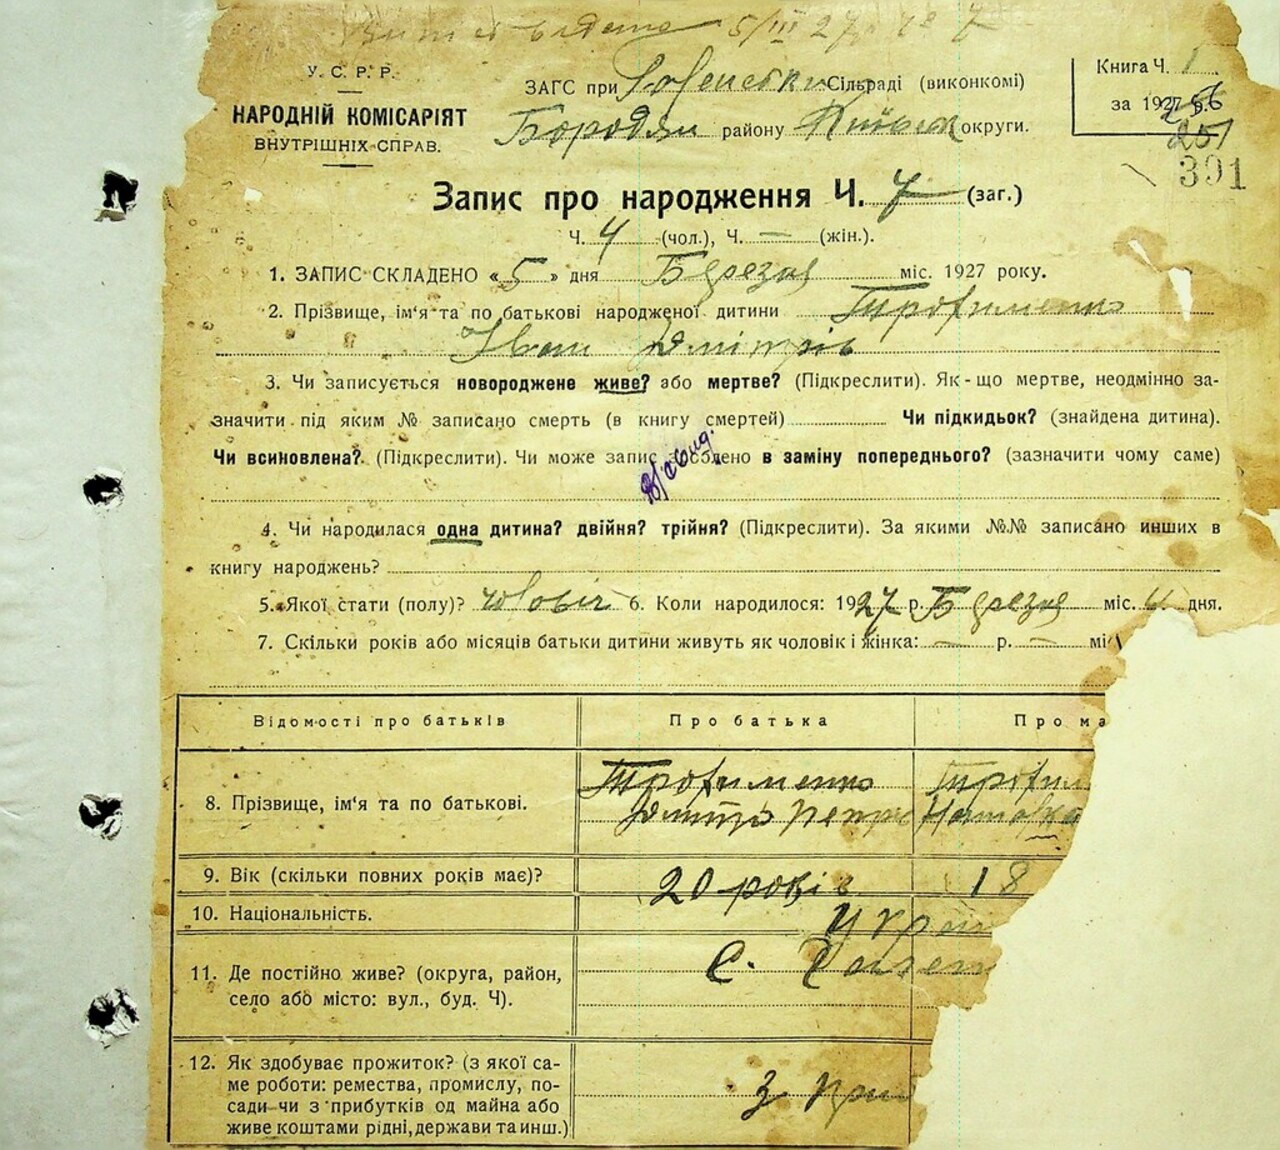 5/III 27
У. С. Р. Р.
НАРОДНІЙ КОМІСАРІЯТ
ВНУТРІШНІХ СПРАВ.
ЗАГС при Сільраді (виконкомі)
Бородян району Київськ округи.
Книга Ч. 1
за 192
251
391
Запис про народження Ч. 7 (заг.)
Ч. 4 (чол.), Ч. — (жін.).
1. ЗАПИС СКЛАДЕНО «5» дня Березня міс. 1927 року.
2. Прізвище, ім'я та по батькові народженої дитини Трофименко
Іван Дмітрів
3. Чи записується новороджене живе? або мертве? (Підкреслити). Як-що мертве, неодмінно за-
значити під яким № записано смерть (в книгу смертей) Чи підкидьок? (знайдена дитина).
Чи всиновлена? (Підкреслити). Чи може запис зроблено в заміну попереднього? (зазначити чому саме)
4. Чи народилася одна дитина? двійня? трійня? (Підкреслити). За якими №№ записано инших в
книгу народжень?
5. Якої стати (полу)? чоловіч 6. Коли народилося: 1927 р. Березня міс. 4 дня.
7. Скільки років або місяців батьки дитини живуть як чоловік і жінка: — р. — мі
Відомости про батьків Про батька Про ма
8. Прізвище, ім'я та по батькові. Трофименко Трофим
Дмитро Петро
9. Вік (скільки повних років має)? 20 років 18
10. Національність. Украї
11. Де постійно живе? (округа, район,
село або місто: вул., буд. Ч). с.
12. Як здобуває прожиток? (з якої са-
ме роботи: ремества, промислу, по-
сади чи з прибутків од майна або
живе коштами рідні, держави та инш.) З